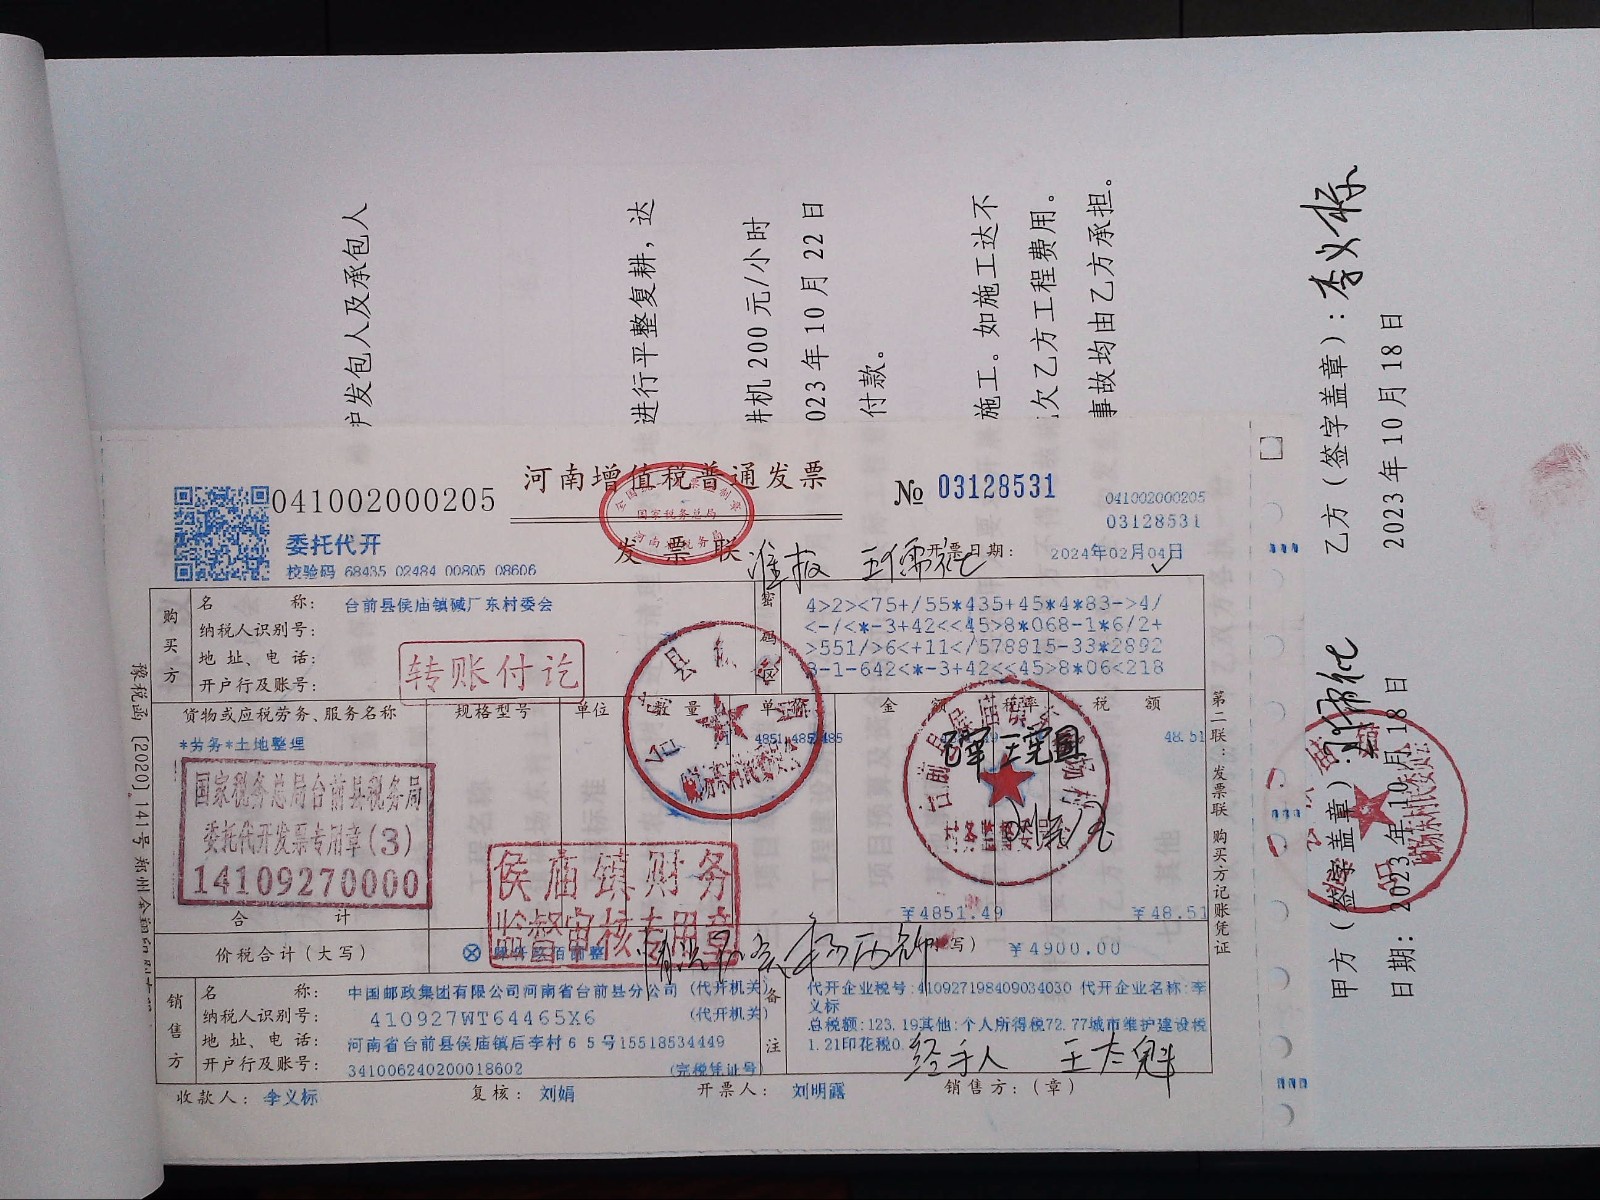 户发包人及承包人
进行平整复耕，达
井机 200 元/小时
023 年 10 月 22 日
付款。
施工。如施工达不
欠乙方工程费用。
事故均由乙方承担。
乙方（签字盖章）：李义标
2023 年 10 月 18 日
甲方（签字盖章）：
日期：2023 年 10 月 18 日
041002000205
河南增值税普通发票
国家税务总局
发票联
№ 03128531
041002000205
03128531
委托代开
校验码 68435 02484 00805 08606
准报
开票日期： 2024年02月04日
购买方
名 称： 台前县侯庙镇碱厂东村委会
纳税人识别号：
地 址、电 话：
开户行及账号：
转账付讫
密码区
4>2><75+/55*435+45*4*83->4/
<-/<*-3+42<<45>8*068-1*6/2+
>551/>6<+11</578815-33*2892
3-1-642<*-3+42<<45>8*06<218
货物或应税劳务、服务名称 规格型号 单位 数量 单价 金 额 税率 税 额
*劳务*土地整理
48.51
国家税务总局台前县税务局
委托代开发票专用章(3)
14109270000
侯庙镇财务
监督审核专用章
合 计 ￥4851.49 ￥48.51
价税合计（大写） ⊗ 肆仟玖佰圆整 ￥4900.00
销售方
名 称： 中国邮政集团有限公司河南省台前县分公司 (代开机关)
纳税人识别号： 410927WT64465X6 (代开机关)
地 址、电 话： 河南省台前县侯庙镇后李村65号15518534449
开户行及账号： 341006240200018602 (完税凭证号)
备注
代开企业税号:410927198409034030 代开企业名称:李
义标
总税额:123.19其他:个人所得税72.77城市维护建设税
1.21印花税0.
经手人
收款人： 李义标 复核： 刘娟 开票人： 刘明露 销售方：（章）
第二联：发票联 购买方记账凭证
豫税函[2020]141号